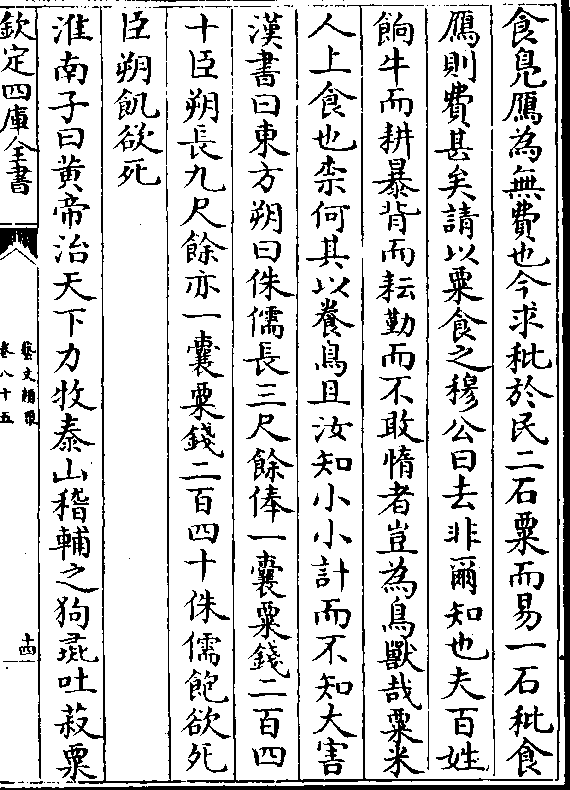 食鳬鴈為無費也今求秕於民二石粟而易一石秕食
鴈則費甚矣請以粟食之穆公曰去非爾知也夫百姓
餉牛而耕暴背而耘勤而不敢惰者豈為鳥獸哉粟米
人上食也柰何其以養鳥且汝知小小計而不知大害
漢書曰東方朔曰侏儒長三尺餘俸一囊粟錢二百四
十臣朔長九尺餘亦一囊粟錢二百四十侏儒飽欲死
臣朔飢欲死
淮南子曰黄帝治天下力牧泰山稽輔之狗彘吐菽粟
欽定四庫全書
藝文類聚
卷八十五
十四